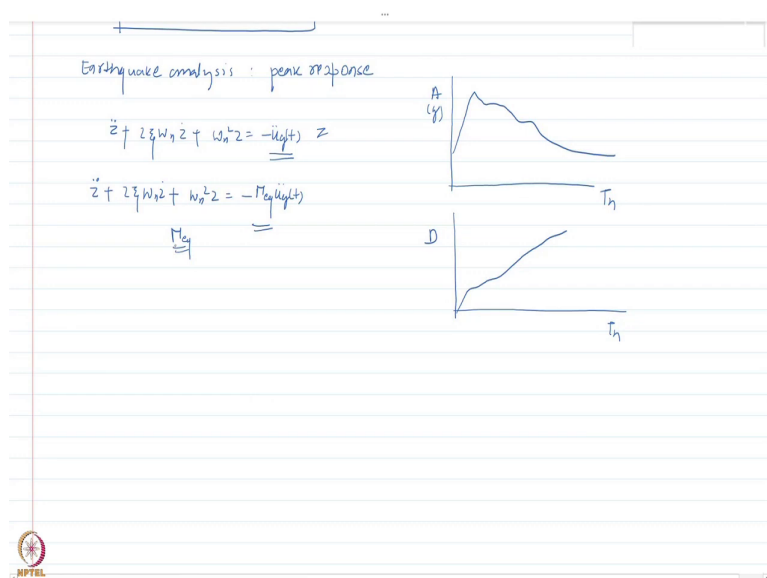 Earthquake analysis : peak response
z̈ + 2ξωₙż + ωₙ²z = -üg(t) z
z̈ + 2ξωₙż + ωₙ²z = -Meq üg(t)
Meq
A
(g)
Tn
D
Tn
NPTEL